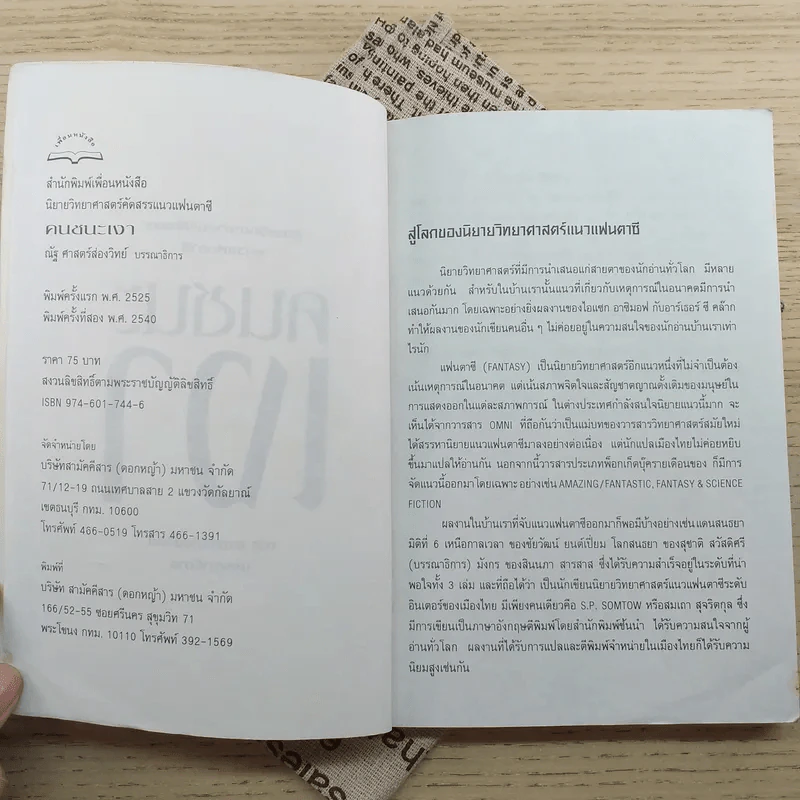 เพื่อนหนังสือ
สำนักพิมพ์เพื่อนหนังสือ
นิยายวิทยาศาสตร์คัดสรรแนวแฟนตาซี
คนชนะเงา
ณัฐ ศาสตร์ส่องวิทย์ บรรณาธิการ
พิมพ์ครั้งแรก พ.ศ. 2525
พิมพ์ครั้งที่สอง พ.ศ. 2540
ราคา 75 บาท
สงวนลิขสิทธิ์ตามพระราชบัญญัติลิขสิทธิ์
ISBN 974-601-744-6
จัดจำหน่ายโดย
บริษัทสามัคคีสาร (ดอกหญ้า) มหาชน จำกัด
71/12-19 ถนนเทศบาลสาย 2 แขวงวัดกัลยาณ์
เขตธนบุรี กทม. 10600
โทรศัพท์ 466-0519 โทรสาร 466-1391
พิมพ์ที่
บริษัท สามัคคีสาร (ดอกหญ้า) มหาชน จำกัด
166/52-55 ซอยศรีนคร สุขุมวิท 71
พระโขนง กทม. 10110 โทรศัพท์ 392-1569
สู่โลกของนิยายวิทยาศาสตร์แนวแฟนตาซี
นิยายวิทยาศาสตร์ที่มีการนำเสนอแก่สายตาของนักอ่านทั่วโลก มีหลาย
แนวด้วยกัน สำหรับในบ้านเรานั้นแนวที่เกี่ยวกับเหตุการณ์ในอนาคตมีการนำ
เสนอกันมาก โดยเฉพาะอย่างยิ่งผลงานของไอแซก อาซิมอฟ กับอาร์เธอร์ ซี คล๊าก
ทำให้ผลงานของนักเขียนคนอื่น ๆ ไม่ค่อยอยู่ในความสนใจของนักอ่านบ้านเราเท่า
ไรนัก
แฟนตาซี (FANTASY) เป็นนิยายวิทยาศาสตร์อีกแนวหนึ่งที่ไม่จำเป็นต้อง
เน้นเหตุการณ์ในอนาคต แต่เน้นสภาพจิตใจและสัญชาตญาณดั้งเดิมของมนุษย์ใน
การแสดงออกในแต่ละสภาพการณ์ ในต่างประเทศกำลังสนใจนิยายแนวนี้มาก จะ
เห็นได้จากวารสาร OMNI ที่ถือกันว่าเป็นแม่บทของวารสารวิทยาศาสตร์สมัยใหม่
ได้สรรหานิยายแนวแฟนตาซีมาลงอย่างต่อเนื่อง แต่นักแปลเมืองไทยไม่ค่อยหยิบ
ขึ้นมาแปลให้อ่านกัน นอกจากนี้วารสารประเภทพ็อกเก็ตบุ๊ครายเดือนของ ก็มีการ
จัดแนวนี้ออกมาโดยเฉพาะ อย่างเช่น AMAZING/FANTASTIC, FANTASY & SCIENCE
FICTION
ผลงานในบ้านเราที่จับแนวแฟนตาซีออกมาก็พอมีบ้างอย่างเช่น แดนสนธยา
มิติที่ 6 เหนือกาลเวลา ของชัยวัฒน์ ยนต์เปี่ยม โลกสนธยา ของสุชาติ สวัสดิศรี
(บรรณาธิการ) มังกร ของสินนภา สารสาส ซึ่งได้รับความสำเร็จอยู่ในระดับที่น่า
พอใจทั้ง 3 เล่ม และที่ถือได้ว่า เป็นนักเขียนนิยายวิทยาศาสตร์แนวแฟนตาซีระดับ
อินเตอร์ของเมืองไทย มีเพียงคนเดียวคือ S.P. SOMTOW หรือสมเถา สุจริตกุล ซึ่ง
มีการเขียนเป็นภาษาอังกฤษตีพิมพ์โดยสำนักพิมพ์ชั้นนำ ได้รับความสนใจจากผู้
อ่านทั่วโลก ผลงานที่ได้รับการแปลและตีพิมพ์จำหน่ายในเมืองไทยก็ได้รับความ
นิยมสูงเช่นกัน